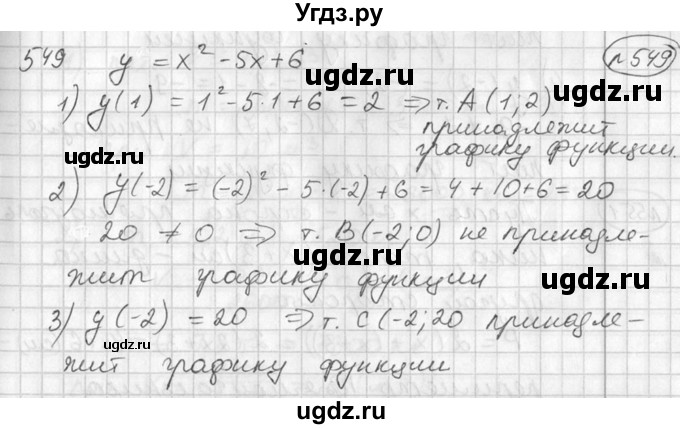 Угдз.ру
549 y = x² - 5x + 6 №549
1) y(1) = 1² - 5·1 + 6 = 2 ⇒ т. A(1; 2)
принадлежит
графику функции.
ugdz.ru ugdz.ru
2) y(-2) = (-2)² - 5·(-2) + 6 = 4 + 10 + 6 = 20
ugdz.ru
20 ≠ 0 ⇒ т. B(-2; 0) не принадле-
ugdz.ru
жит графику функции
3) y(-2) = 20 ⇒ т. C(-2; 20 принадле-
ugdz.ru ugdz.ru
жит графику функции
ugdz.ru